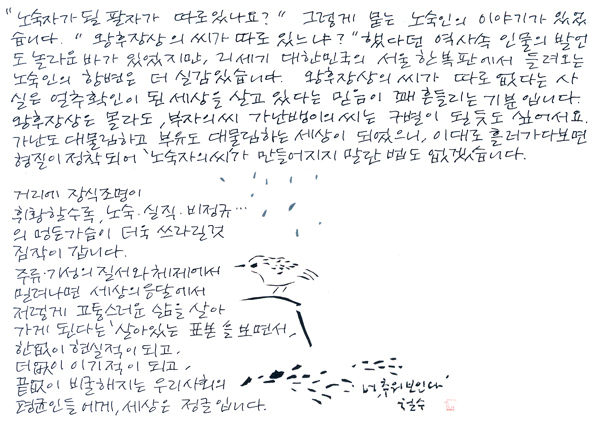 "노숙자가 될 팔자가 따로 있나요?" 그렇게 묻는 노숙인의 이야기가 있었
습니다. "왕후장상의 씨가 따로 있느냐?" 했다던 역사속 인물의 발언
도 놀라운 바가 있었지만, 21세기 대한민국의 서울 한복판에서 들려오는
노숙인의 항변은 더 실감있습니다. 왕후장상의 씨가 따로 없다는 사
실은 얼추 확인이 된 세상을 살고 있다는 믿음이 꽤 흔들리는 기분입니다.
왕후장상은 몰라도, 부자의 씨 가난뱅이의 씨는 구별이 될 듯도 싶어서요.
가난도 대물림하고 부유도 대물림하는 세상이 되었으니, 이대로 흘러가다보면
형질이 정착되어 '노숙자의 씨'가 만들어지지 말란 법도 없겠습니다.
거리에 장식조명이
휘황할수록, 노숙·실직·비정규…
의 멍든가슴이 더욱 쓰라릴것
짐작이 갑니다.
주류·기성의 질서와 체제에서
밀려나면 세상의 응달에서
저렇게 고통스러운 삶을 살아
가게 된다는 '살아있는 표본'을 보면서,
한없이 현실적이 되고,
더없이 이기적이 되고,
끝없이 비굴해지는 우리사회의
평균인들에게, 세상은 정글입니다.
"너, 추워보인다"
철수